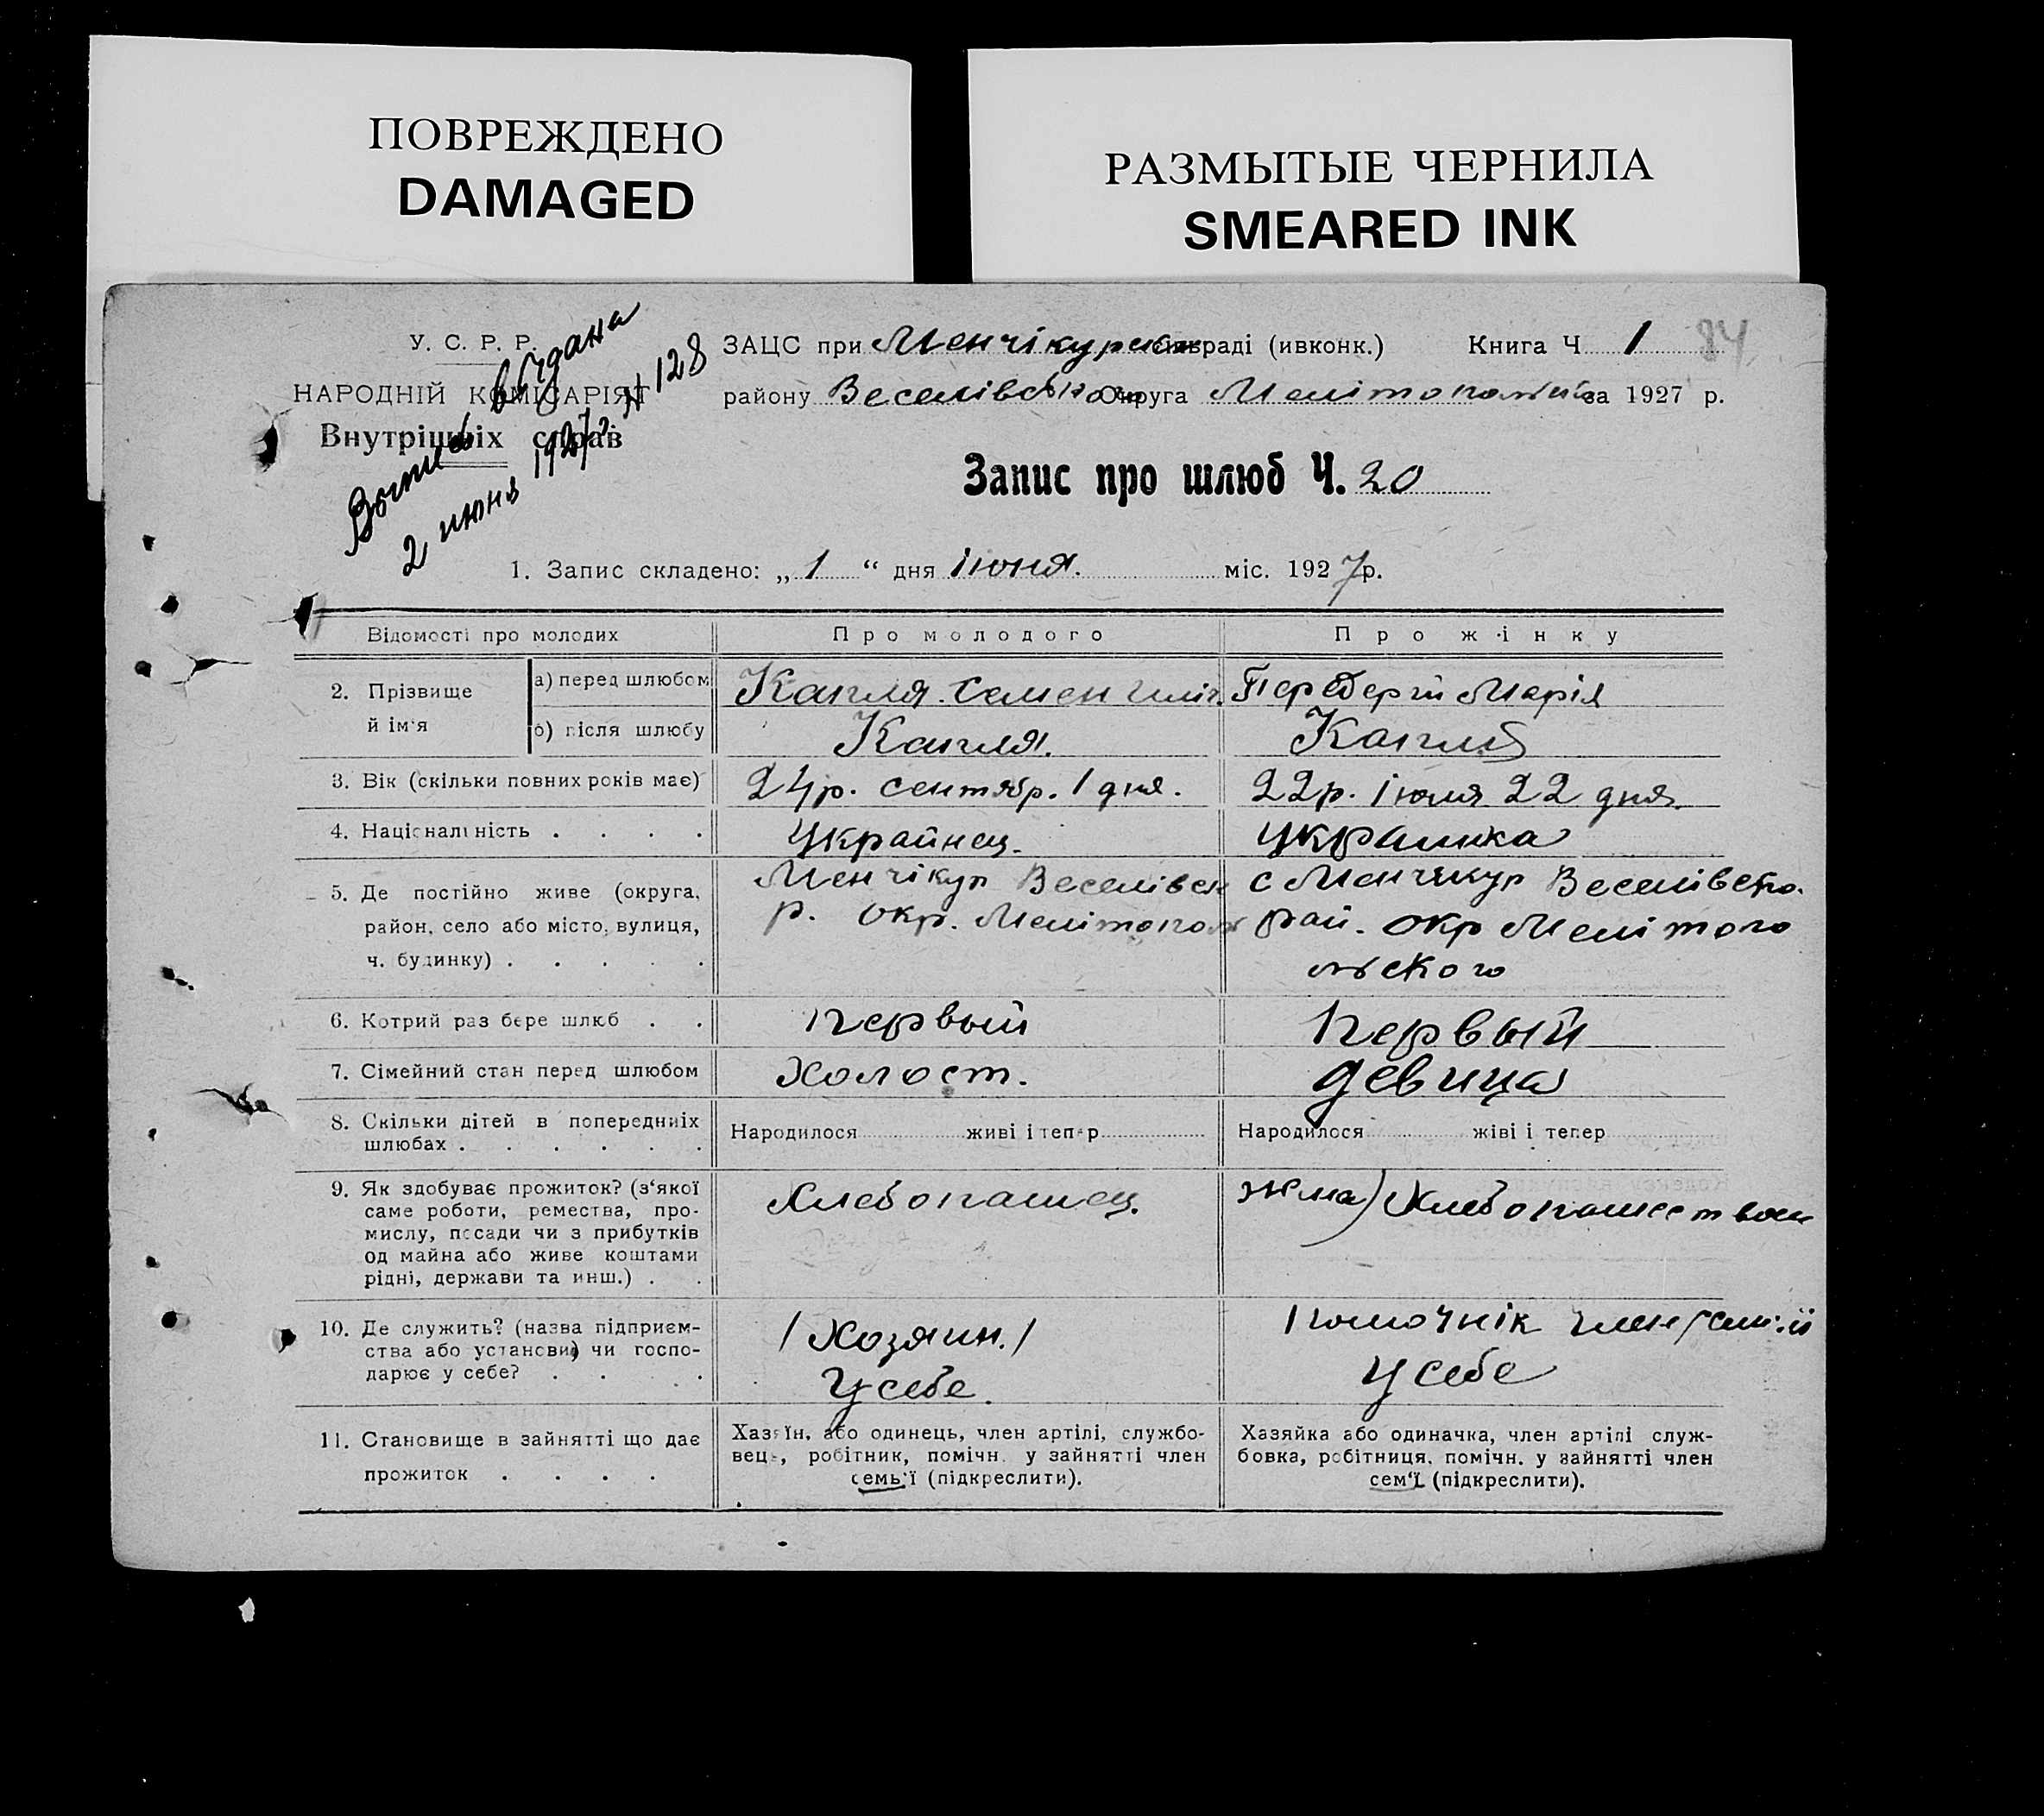 ПОВРЕЖДЕНО
DAMAGED
РАЗМЫТЫЕ ЧЕРНИЛА
SMEARED INK
У. С. Р. Р.
НАРОДНІЙ КОМІСАРІЯТ
Внутрішніх справ
видана
2 июня 1927 г. № 128
ЗАЦС при Менчікурск сільраді (ивконк.) Книга Ч 1 84
району Веселівсько Округа за 1927 р.
Запис про шлюб Ч. 20
1. Запис складено: „ 1 “ дня іюня. міс. 1927 р.
Відомості про молодих
Про молодого
Про жінку
2. Прізвище й ім'я
а) перед шлюбом
Капля Семен Марія
б) після шлюбу
Капля.
3. Вік (скільки повних років має)
24р. сентябр. 1 дня.
22р. іюля 22 дня.
4. Національність . . . .
Украйнец.
украинка
5. Де постійно живе (округа,
район, село або місто, вулиця,
ч. будинку) . . . . .
Менчікур Веселівск
р. окр. Мелітополь
с Менчикур Веселівсько.
рай. окр Меліто по
льского
6. Котрий раз бере шлюб . .
первый
первый
7. Сімейний стан перед шлюбом
холост.
девица
8. Скільки дітей в попередніх
шлюбах . . . . . .
Народилося живі і тепер
Народилося жіві і тепер
9. Як здобуває прожиток? (з‘якої
саме роботи, ремества, про-
мислу, посади чи з прибутків
од майна або живе коштами
рідні, держави та инш.) . .
Хлебопашец.
Хлебопашеством
10. Де служить? (назва підприєм-
ства або установи) чи госпо-
дарює у себе? . . . .
/ Хозяин. /
У себе.
помочнік член семії
У себе
11. Становище в зайнятті що дає
прожиток . . . .
Хазяїн, або одинець, член артілі, службо-
вець, робітник, помічн. у зайнятті член
семь‘ї (підкреслити).
Хазяйка або одиначка, член артілі служ-
бовка, робітниця, помічн. у зайнятті член
сем‘ї (підкреслити).